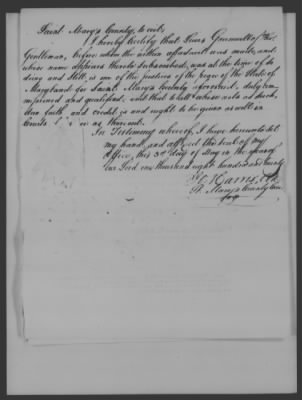 Saint Mary's County, to wit,
I hereby certify that
Gentleman, before whom the within affidavit was made, and
whose name appears thereto Subscribed, was at the time of so
doing and still is one of the justices of the peace of the State of
Maryland for Saint Mary's County aforesaid, duly com
missioned and qualified, and that to all whose acts as such,
due faith and credit is and ought to be given as well in
Courts as thereout.
In Testimony whereof, I have hereunto set
my hand, and affixed the seal of my
Office, this 3d day of May in the year of
our Lord one thousand eight hundred and twenty
Harris, Clk
St. Mary's County Court